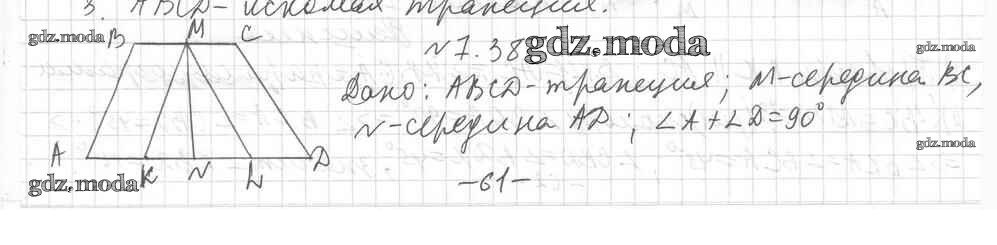 3. ABCD- искомая трапеция.
gdz.moda
B M C
№7.38
gdz.moda
gdz.moda
Дано: ABCD-трапеция; M-середина BC,
N-середина AD; ∠A+∠D=90°
gdz.moda
A K N L D
gdz.moda
-61-